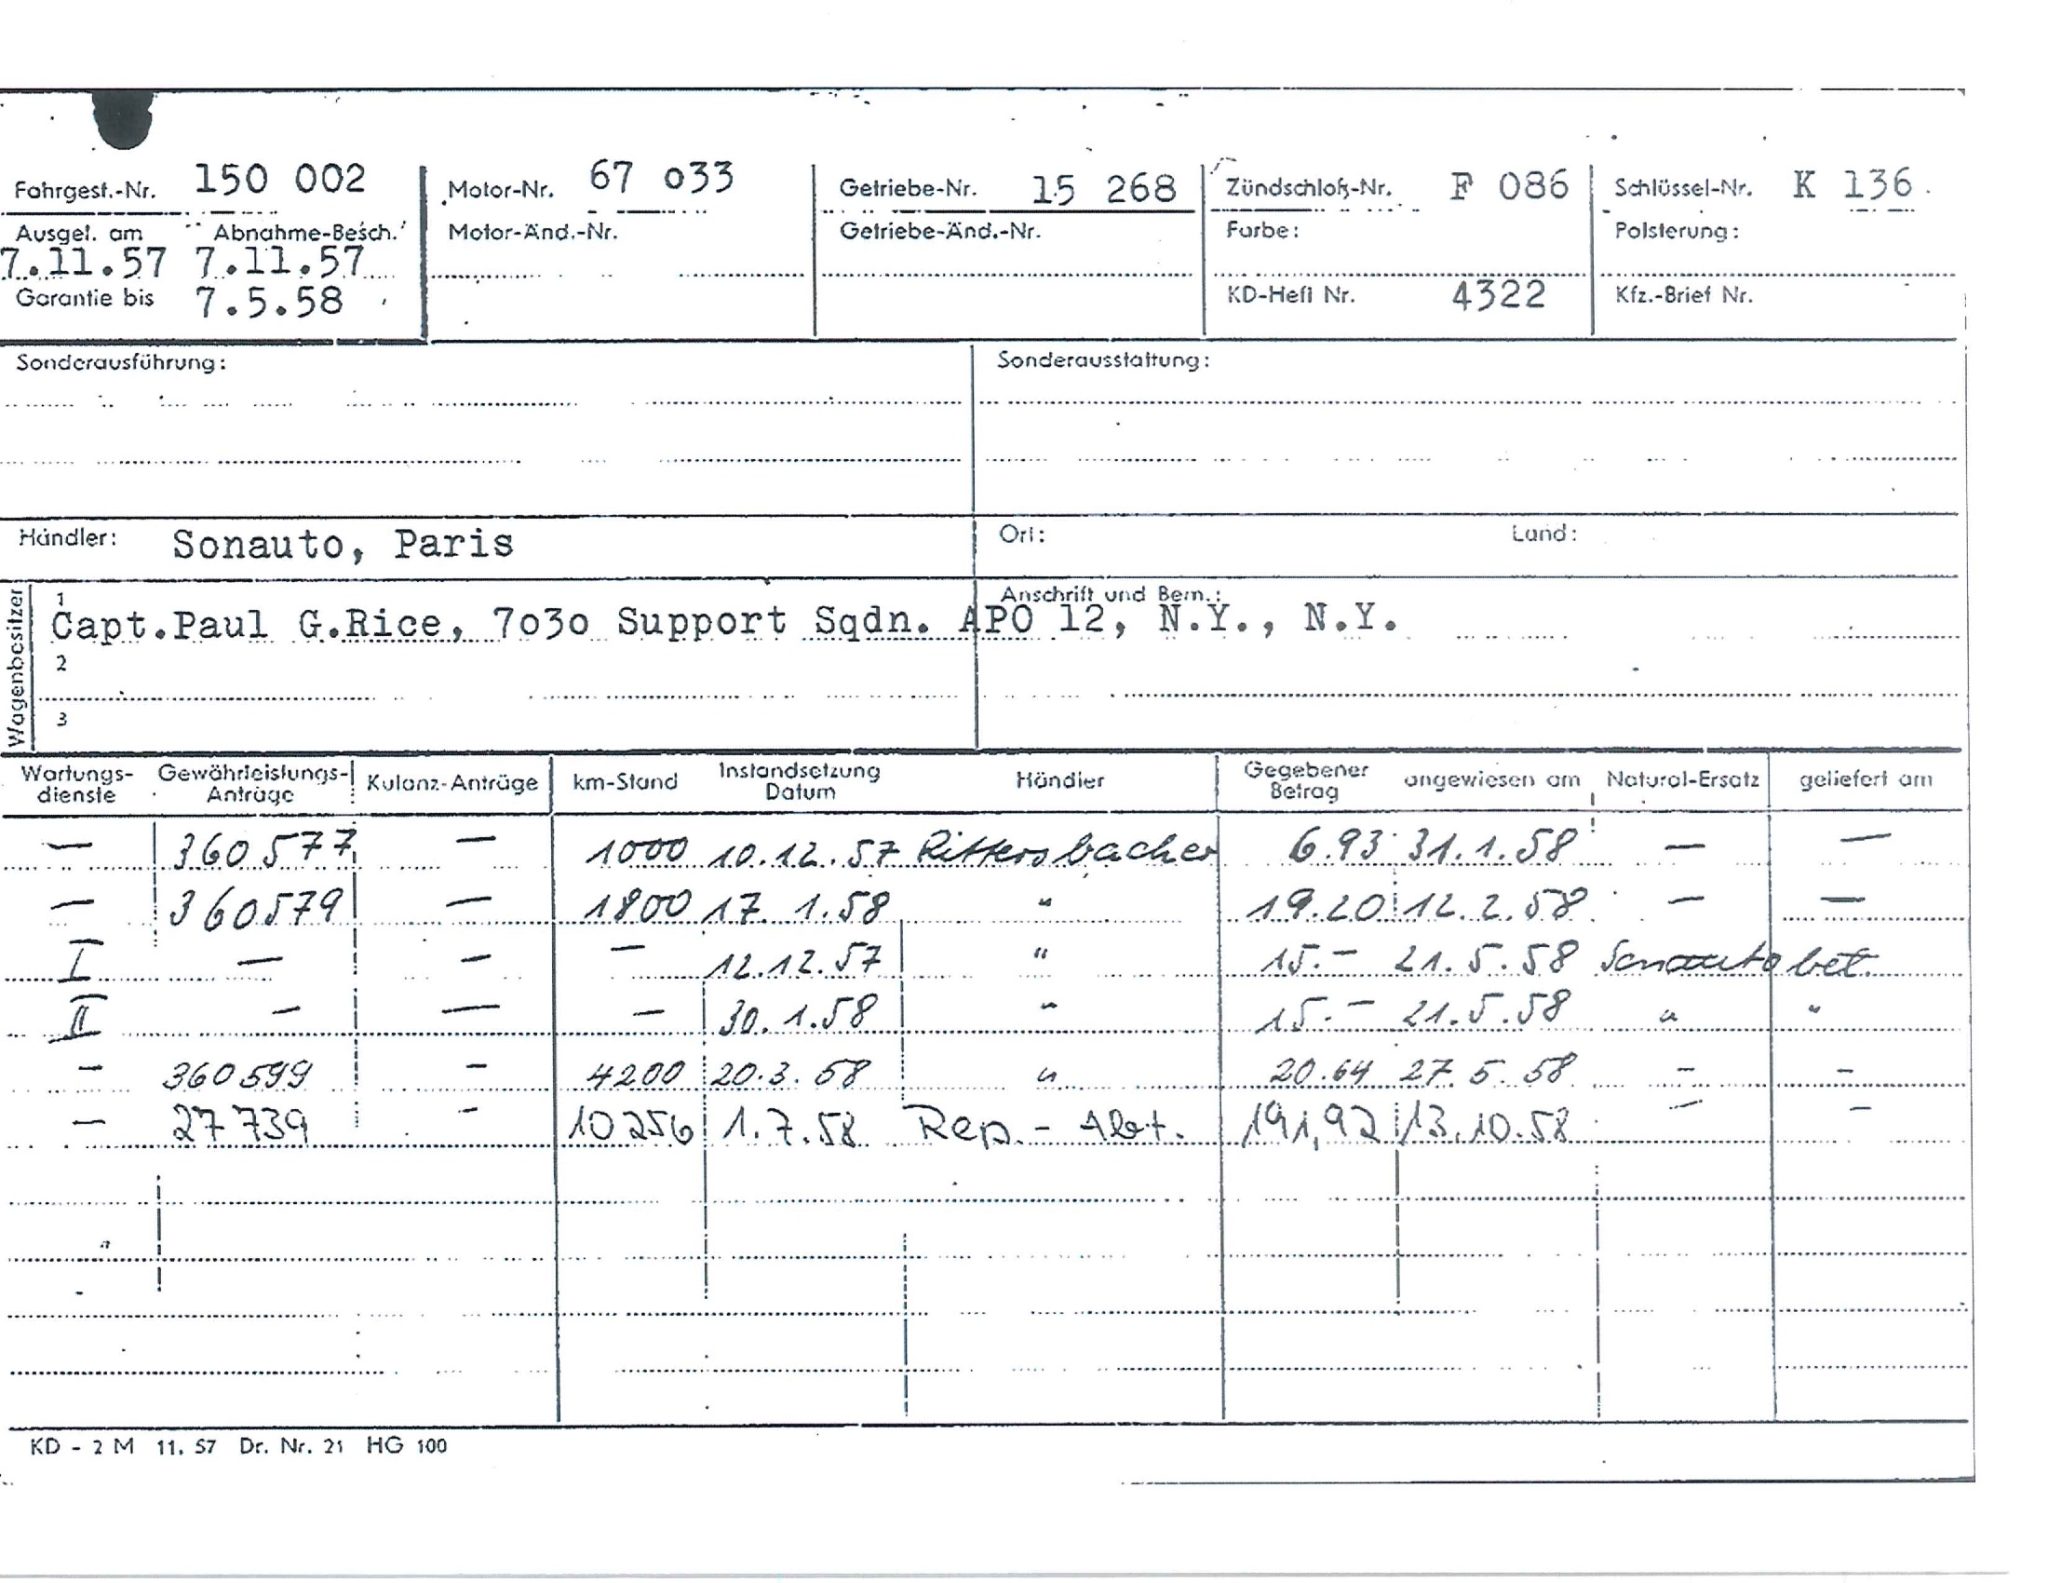 Fahrgest.-Nr. 150 002 Motor-Nr. 67 033 Getriebe-Nr. 15 268 Zündschloß-Nr. F 086 Schlüssel-Nr. K 136
Ausgel. am Abnahme-Besch. Motor-Änd.-Nr. Getriebe-Änd.-Nr. Farbe: Polsterung:
7.11.57 7.11.57
Garantie bis 7.5.58 KD-Heft Nr. 4322 Kfz.-Brief Nr.
Sonderausführung: Sonderausstattung:
Händler: Sonauto, Paris Ort: Land:
Wagenbesitzer
1 Anschrift und Bem.:
Capt.Paul G.Rice, 7030 Support Sqdn. APO 12, N.Y., N.Y.
2
3
Wartungs- Gewährleistungs- Kulanz-Anträge km-Stand Instandsetzung Händler Gegebener angewiesen am Natural-Ersatz geliefert am
dienste Anträge Datum Betrag
— 360577 — 1000 10.12.57 Rittersbacher 6.93 31.1.58 — —
— 360579 — 1800 17.1.58 " 19.20 12.2.58 — —
I — — — 12.12.57 " 15.- 21.5.58 Sonauto bet.
II — — — 30.1.58 " 15.- 21.5.58 " "
— 360599 — 4200 20.3.58 " 20.64 27.5.58 — —
— 27739 — 10256 1.7.58 Rep.-Abt. 191,92 13.10.58 — —
KD - 2 M 11. 57 Dr. Nr. 21 HG 100